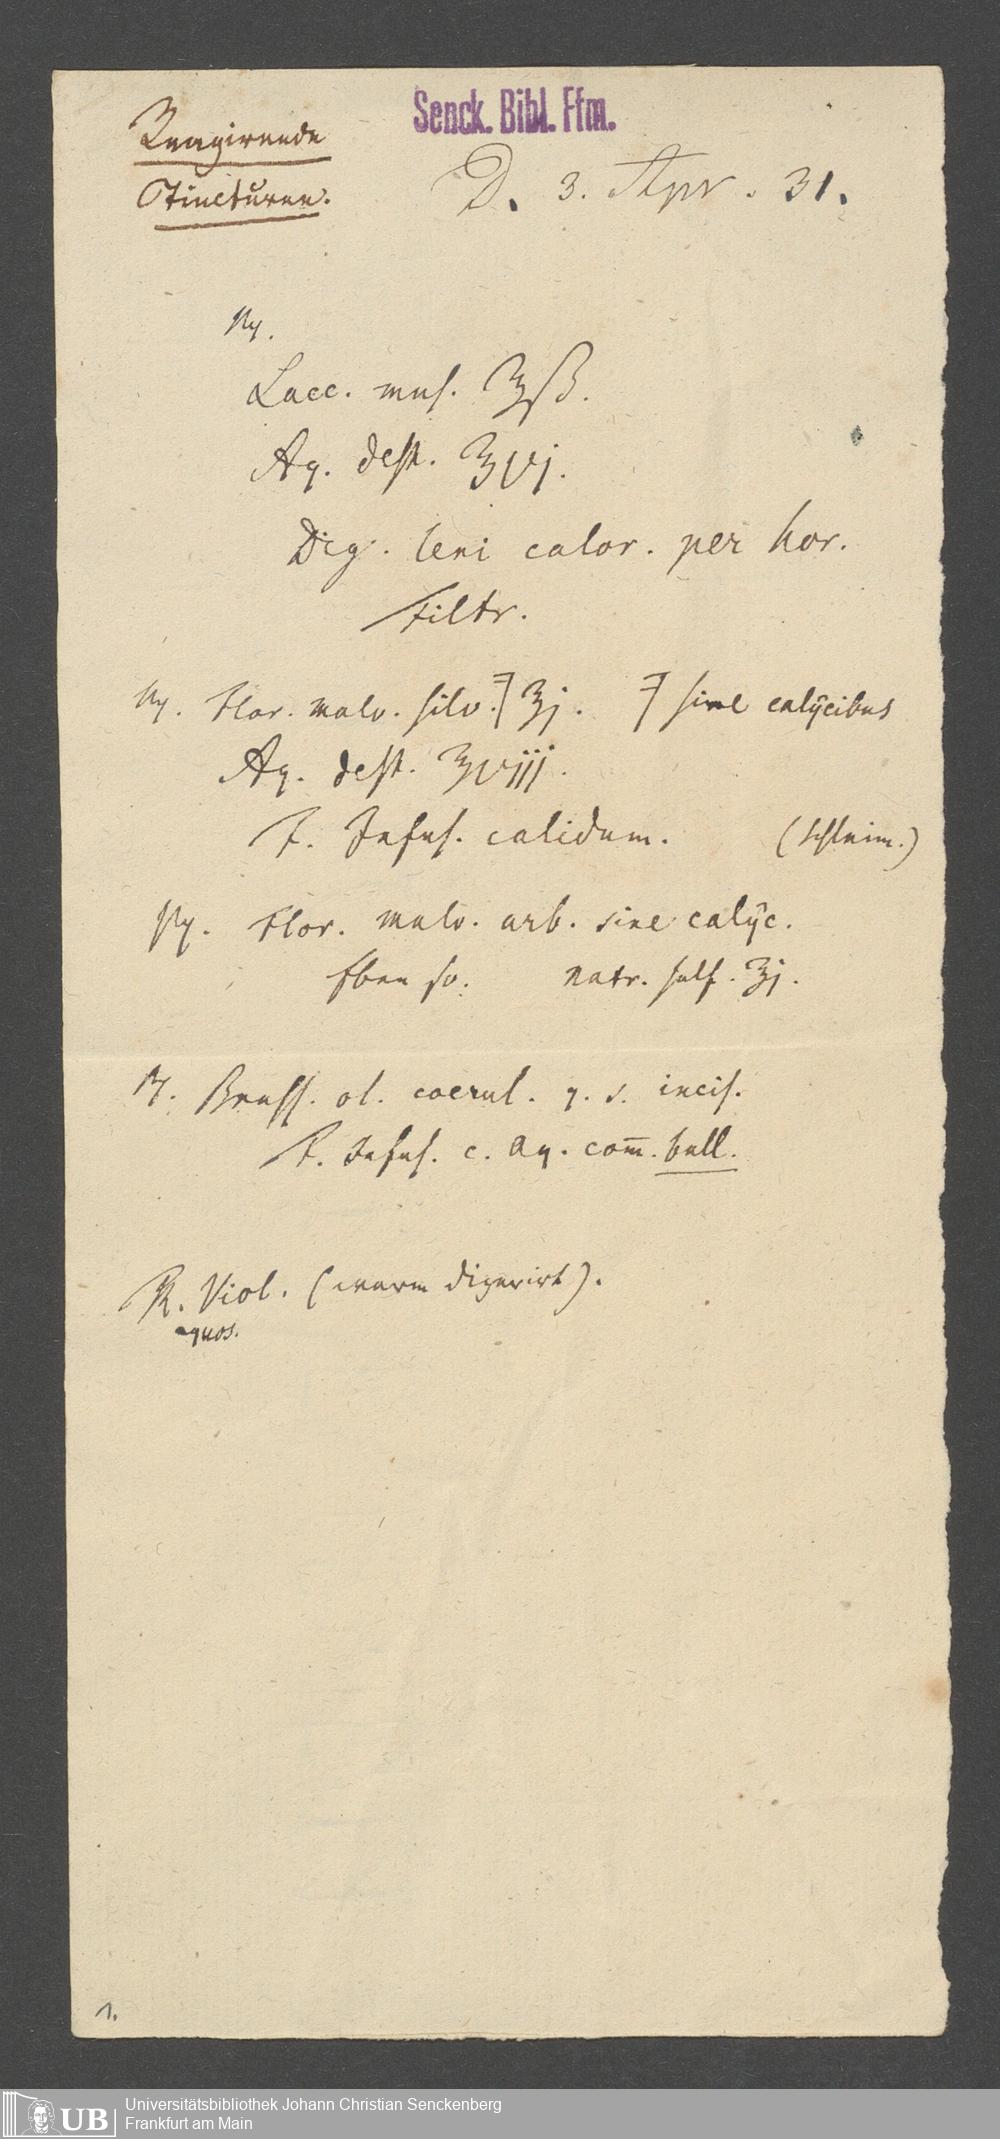 Senck. Bibl. Ffm.
Reagirende
Tincturen.
D. 3. Apr. 31.
Rp.
Lacc. mus. ℥ß.
Aq. dest. ℥vj.
Dig. leni calor. per hor.
Filtr.
Rp. Flor. malv. silv. ℥j. sine calÿcibus
Aq. dest. ℥viij.
F. Infus. calidum. (schleim.)
Rp. Flor. malv. arb. sine calÿc.
Eben so. natr. sulf. ʒj.
Rp. Brass. ol. coerul. q. s. incis.
F. Infus. c. Aq. com̄. bull.
R. Viol. (warm digerirt).
aquos.
1.
UB Universitätsbibliothek Johann Christian Senckenberg
Frankfurt am Main